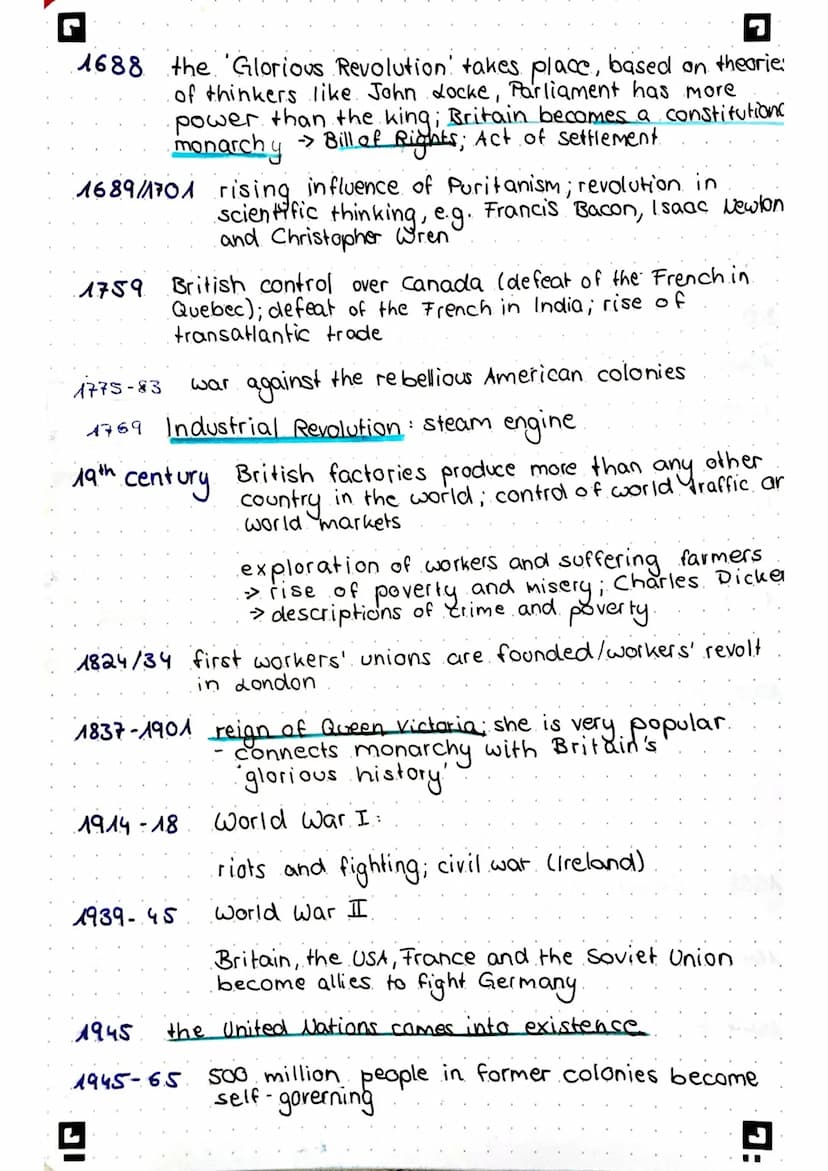 1688 the 'Glorious Revolution' takes place, based on theories
of thinkers like John Locke, Parliament has more
power than the king; Britain becomes a constitutiona
monarchy → Bill of Rights; Act of settlement
1689/1701 rising influence of Puritanism; revolution in
scientific thinking, e.g. Francis Bacon, Isaac Newton
and Christopher Wren
1759 British control over Canada (defeat of the French in
Quebec); defeat of the French in India; rise of
transatlantic trade
1775-83 war against the rebellious American colonies
1769 Industrial Revolution: steam engine
19th century British factories produce more than any other
country in the world; control of world traffic an
world markets
exploration of workers and suffering farmers
→ rise of poverty and misery; Charles Dicke
→ descriptions of crime and poverty
1824/34 first workers' unions are founded/workers' revolt
in London
1837-1901 reign of Queen Victoria; she is very popular
- connects monarchy with Britain's
'glorious history'
1914-18 World War I:
riots and fighting; civil war (Ireland)
1939-45 World War II
Britain, the USA, France and the Soviet Union
become allies to fight Germany
1945 the United Nations comes into existence
1945-65 500 million people in former colonies become
self-governing